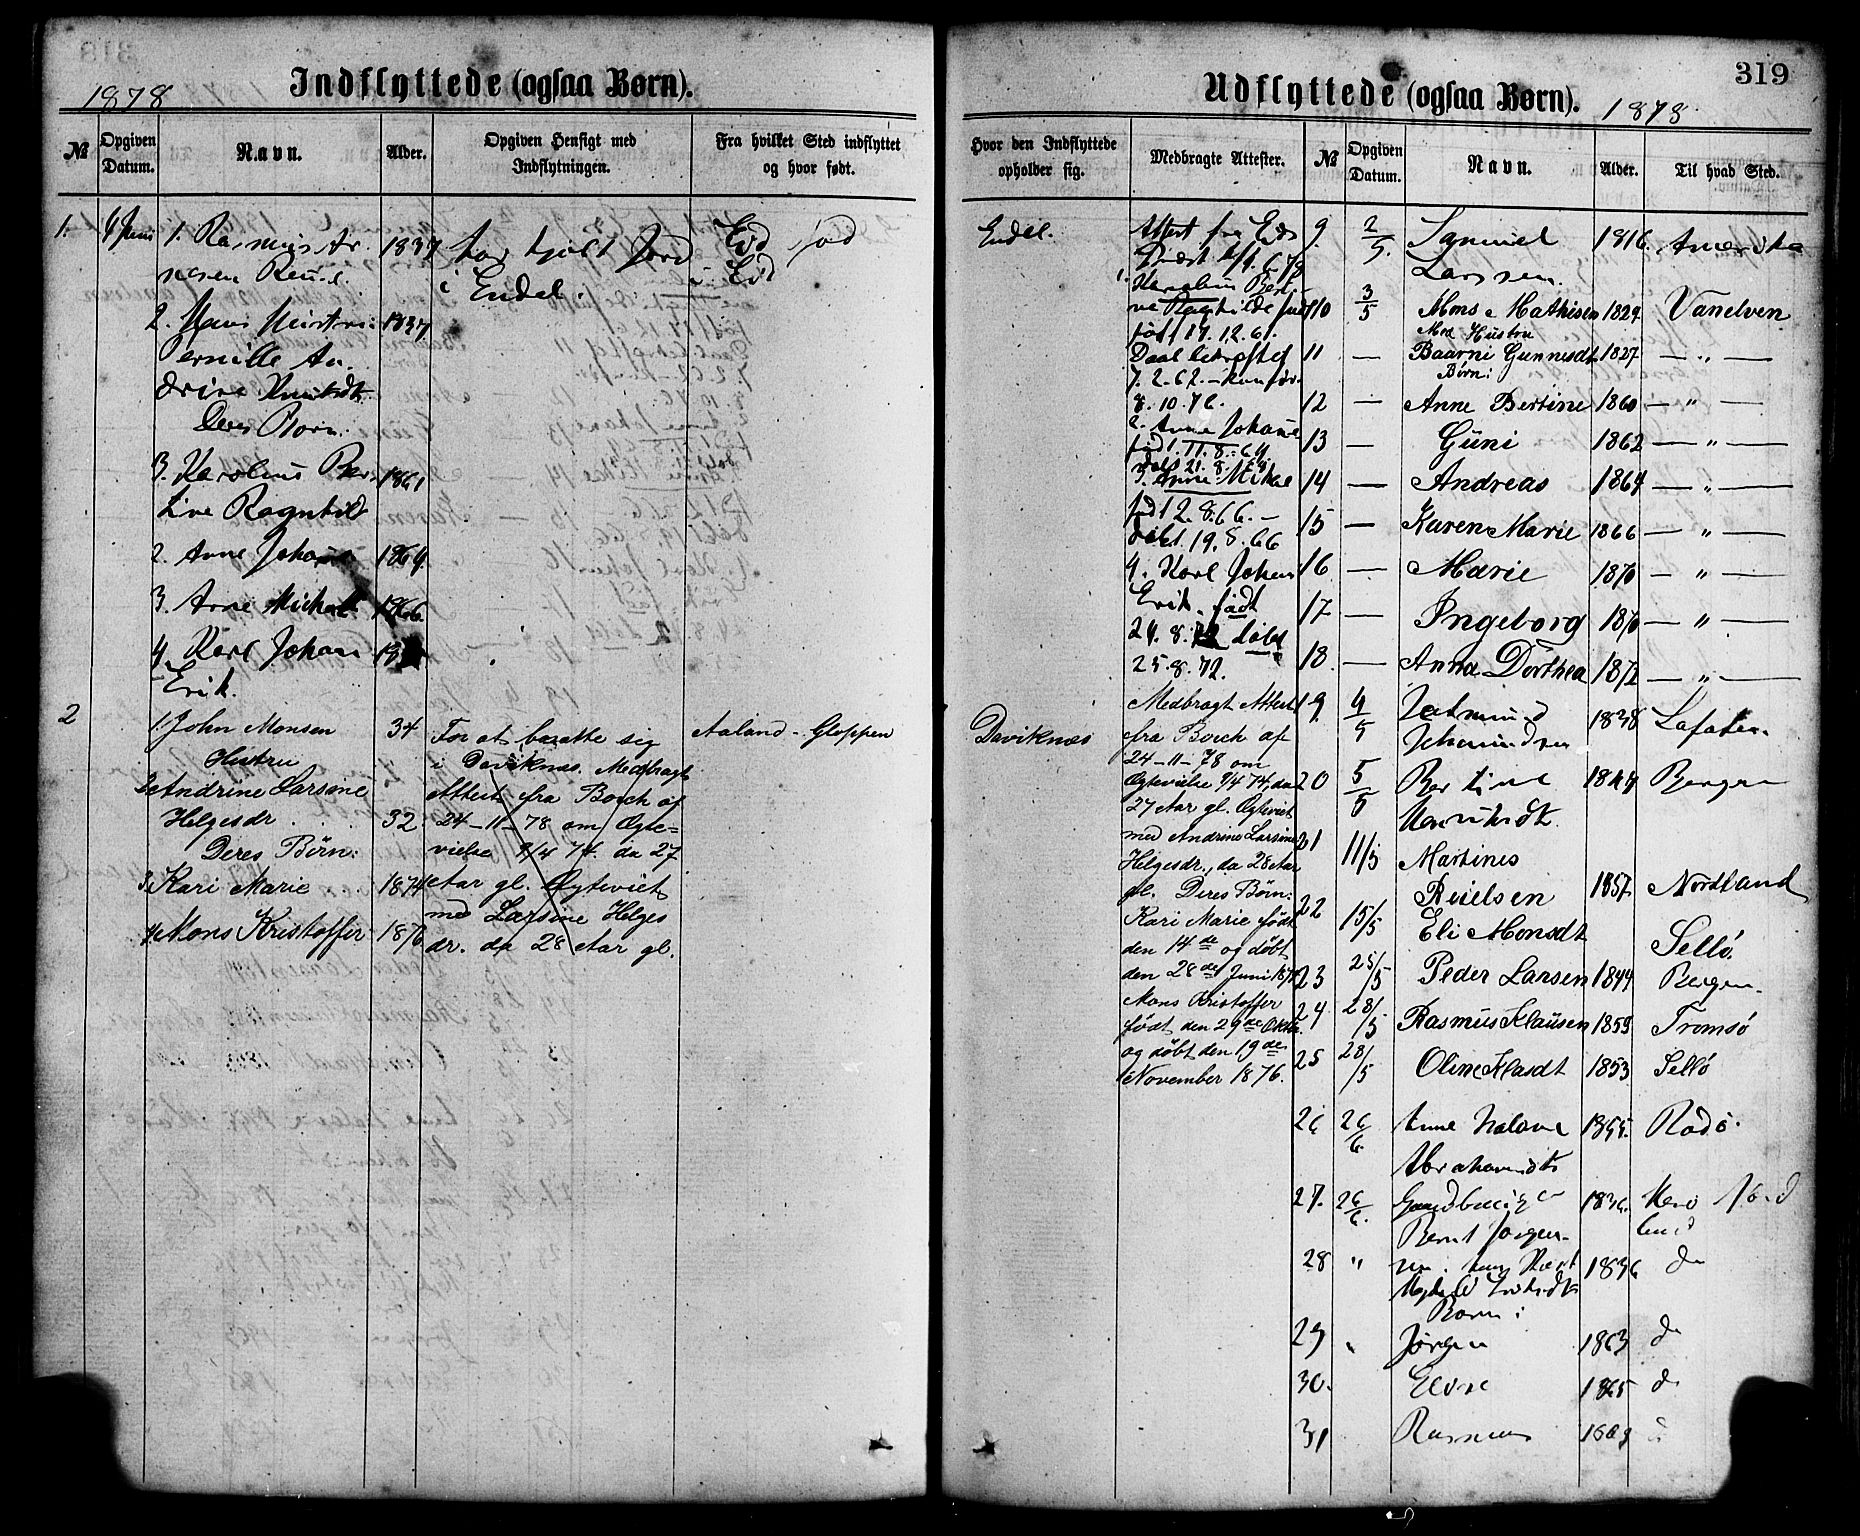 1878
Indflyttede (ogsaa Børn).
№
Opgiven Datum.
Navn.
Alder.
Opgiven Hensigt med Indflytningen.
Fra hvilket Sted indflyttet og hvor født.
1. 4 Juni 1. Rasmus Ar- 1837 har kjøbt Jord Eid
i Endel. Eid
2. 1837
Pernille An-
drine Knudsdt.
Deres Børn:
3. Karolus Ber- 1861
tine Ragnhild
2. Anne Johanne 1864
3. Anne 1866
4 Karl Johan
Erik.
2 1. John Monsen 34 For at bosætte sig Aaland - Gloppen
Hustru i Daviknæs. Medbragt
2 Andrine Larsine Attest fra Borch af
Helgesdr. 32 24-11-78 om Ægte-
Deres Børn: vielse 9/4 74. da 27
3. Kari Marie 1874 Aar gl. Ægteviet
4 Mons Kristoffer 1876 med Larsine Helges
dr. da 28 Aar gl.
319
Udflyttede (ogsaa Børn). 1878
Hvor den Indflyttede opholder sig.
Medbragte Attester.
№
Opgiven Datum.
Navn.
Alder.
Til hvad Sted.
Endel.
Attest fra Eids
født 17.12.61.
Daab bekræftet
7.2.62.
8.10.76.
2. Anne Johanne
født 11.8.64
døbt 21.8.64
3. Anne
født 2.8.66. -
døbt 19.8.66
4. Karl Johan
Erik. født
24.8.72 døbt
25.8.72.
Daviknæs
Medbragt Attest
fra Borch af
24-11-78 om
Ægtevielse 9/4 74, da
27 Aar gl. Ægteviet
med Andrine Larsine
Helgesdr., da 28 Aar
gl. Deres Børn:
Kari Marie født
den 14de og døbt
den 28de Juni 1874
Mons Kristoffer
født den 29de Oktb.
og døbt den 19de
November 1876.
9. 2/5. Samuel 1816 Amerika
Larssen
10 3/5 Mons Mathisen 1829 Vanelven
Med Hustru
11 — Baarni Gunnesdt 1827 — " —
Børn:
12 — Anne Bertine 1860 — " —
13 — Guni 1862 — " —
14 — Andreas 1864 — " —
15 — Karen Marie 1866 — " —
16 — Marie 1870 — " —
17 — Ingeborg 1870 — " —
18. — Anna Dorthea 1872 — " —
19. 4/5 1838 Lafoten.
20 5/5 Bertine Bergen
21 11/5 Martines
Nielsen 1857 Nordland
22 15/5 Eli Monsdt Sellø
23 25/5 Peder Larsen 1844 Bergen.
24 28/5 Rasmus Klausen 1859 Tromsø
25 28/5 Oline Klasdt 1853 Sellø
26 26/6 Anne 1855.
Abrahamsdt
27. 26/6. Gaardbruger 1836.
Bernt Jørgen-
28 " 1836 do
Børn:
29 " Jørgen 1863 do
30. 1865 do
31 Rasmus